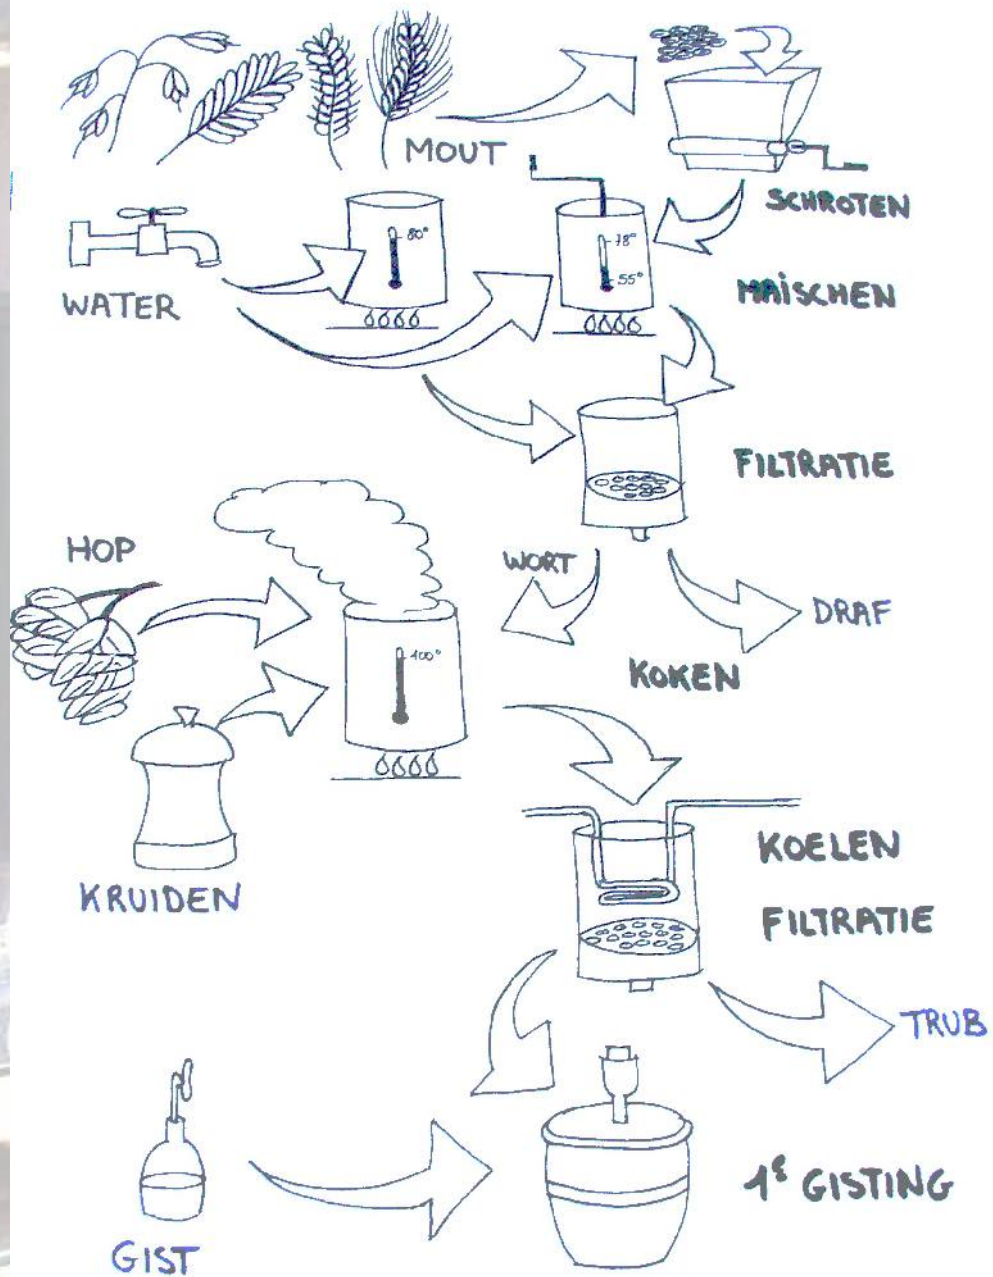 MOUT
SCHROTEN
80°
78°
55°
WATER
MAISCHEN
FILTRATIE
HOP
WORT
DRAF
100°
KOKEN
KRUIDEN
KOELEN
FILTRATIE
TRUB
1e GISTING
GIST